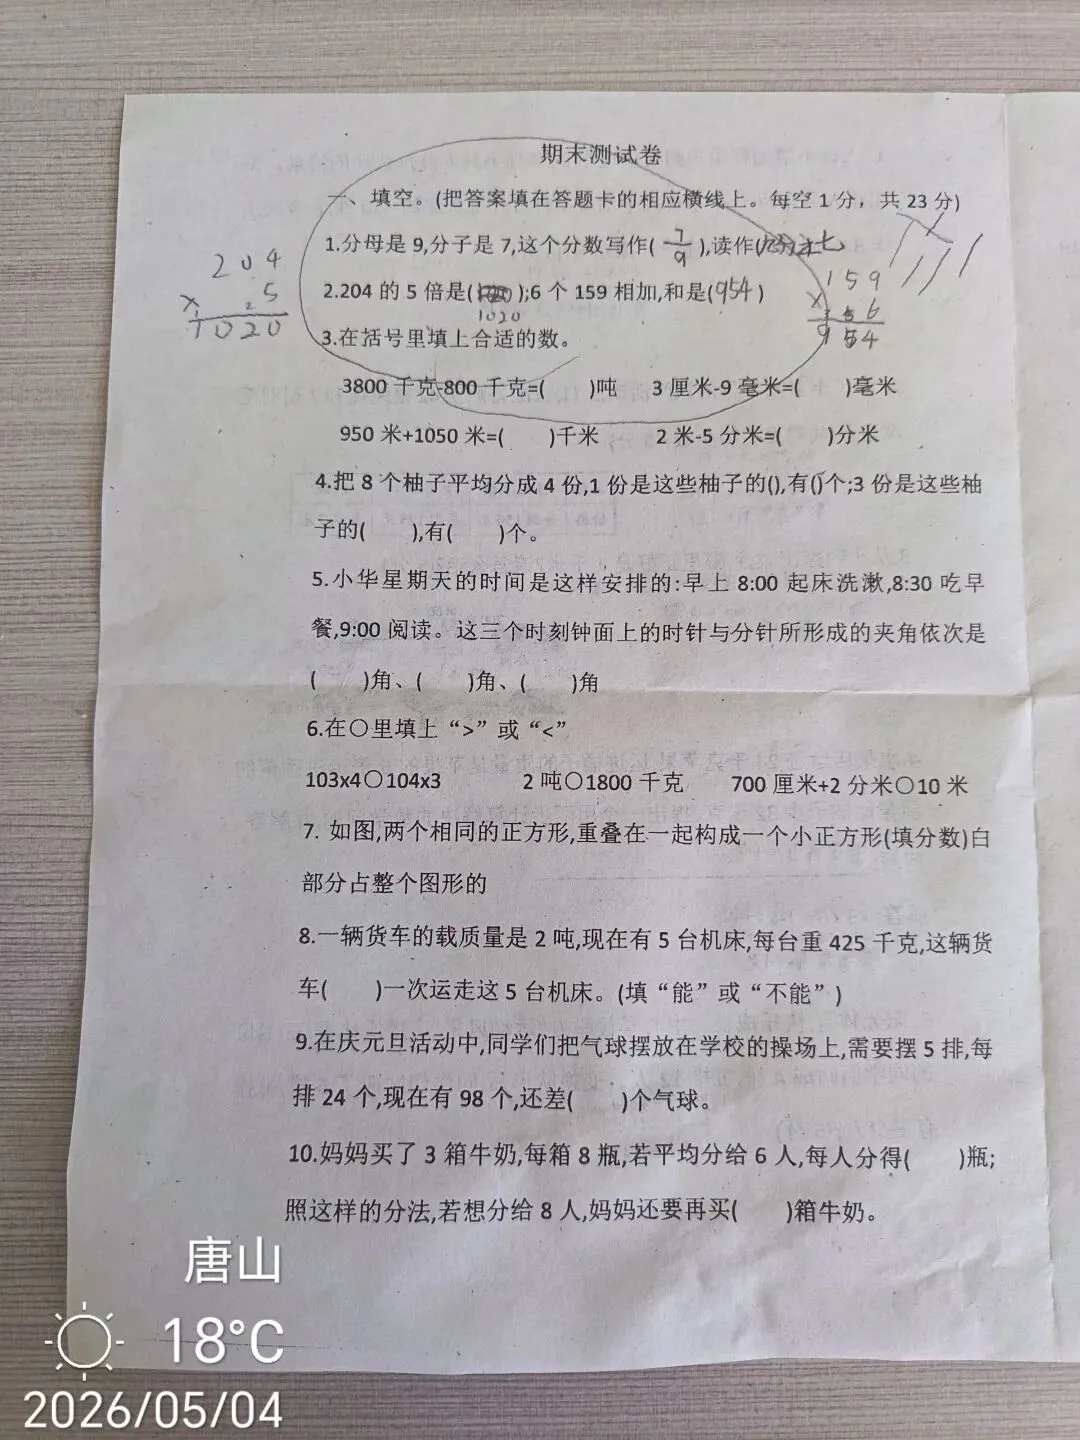 期末测试卷
一、填空。(把答案填在答题卡的相应横线上。每空1分，共23分)
1.分母是9,分子是7,这个分数写作( 7/9 ),读作(九分之七
2.204的5倍是( 1020 );6个159相加,和是(954)
204
× 5
1020
159
× 6
954
3.在括号里填上合适的数。
3800千克-800千克=( )吨 3厘米-9毫米=( )毫米
950米+1050米=( )千米 2米-5分米=( )分米
4.把8个柚子平均分成4份,1份是这些柚子的(),有()个;3份是这些柚
子的( ),有( )个。
5.小华星期天的时间是这样安排的:早上8:00起床洗漱,8:30吃早
餐,9:00阅读。这三个时刻钟面上的时针与分针所形成的夹角依次是
( )角、( )角、( )角
6.在〇里填上“>”或“<”
103x4〇104x3 2吨〇1800千克 700厘米+2分米〇10米
7. 如图,两个相同的正方形,重叠在一起构成一个小正方形(填分数)白
部分占整个图形的
8.一辆货车的载质量是2吨,现在有5台机床,每台重425千克,这辆货
车( )一次运走这5台机床。(填“能”或“不能”)
9.在庆元旦活动中,同学们把气球摆放在学校的操场上,需要摆5排,每
排24个,现在有98个,还差( )个气球。
10.妈妈买了3箱牛奶,每箱8瓶,若平均分给6人,每人分得( )瓶;
照这样的分法,若想分给8人,妈妈还要再买( )箱牛奶。
唐山
18°C
2026/05/04